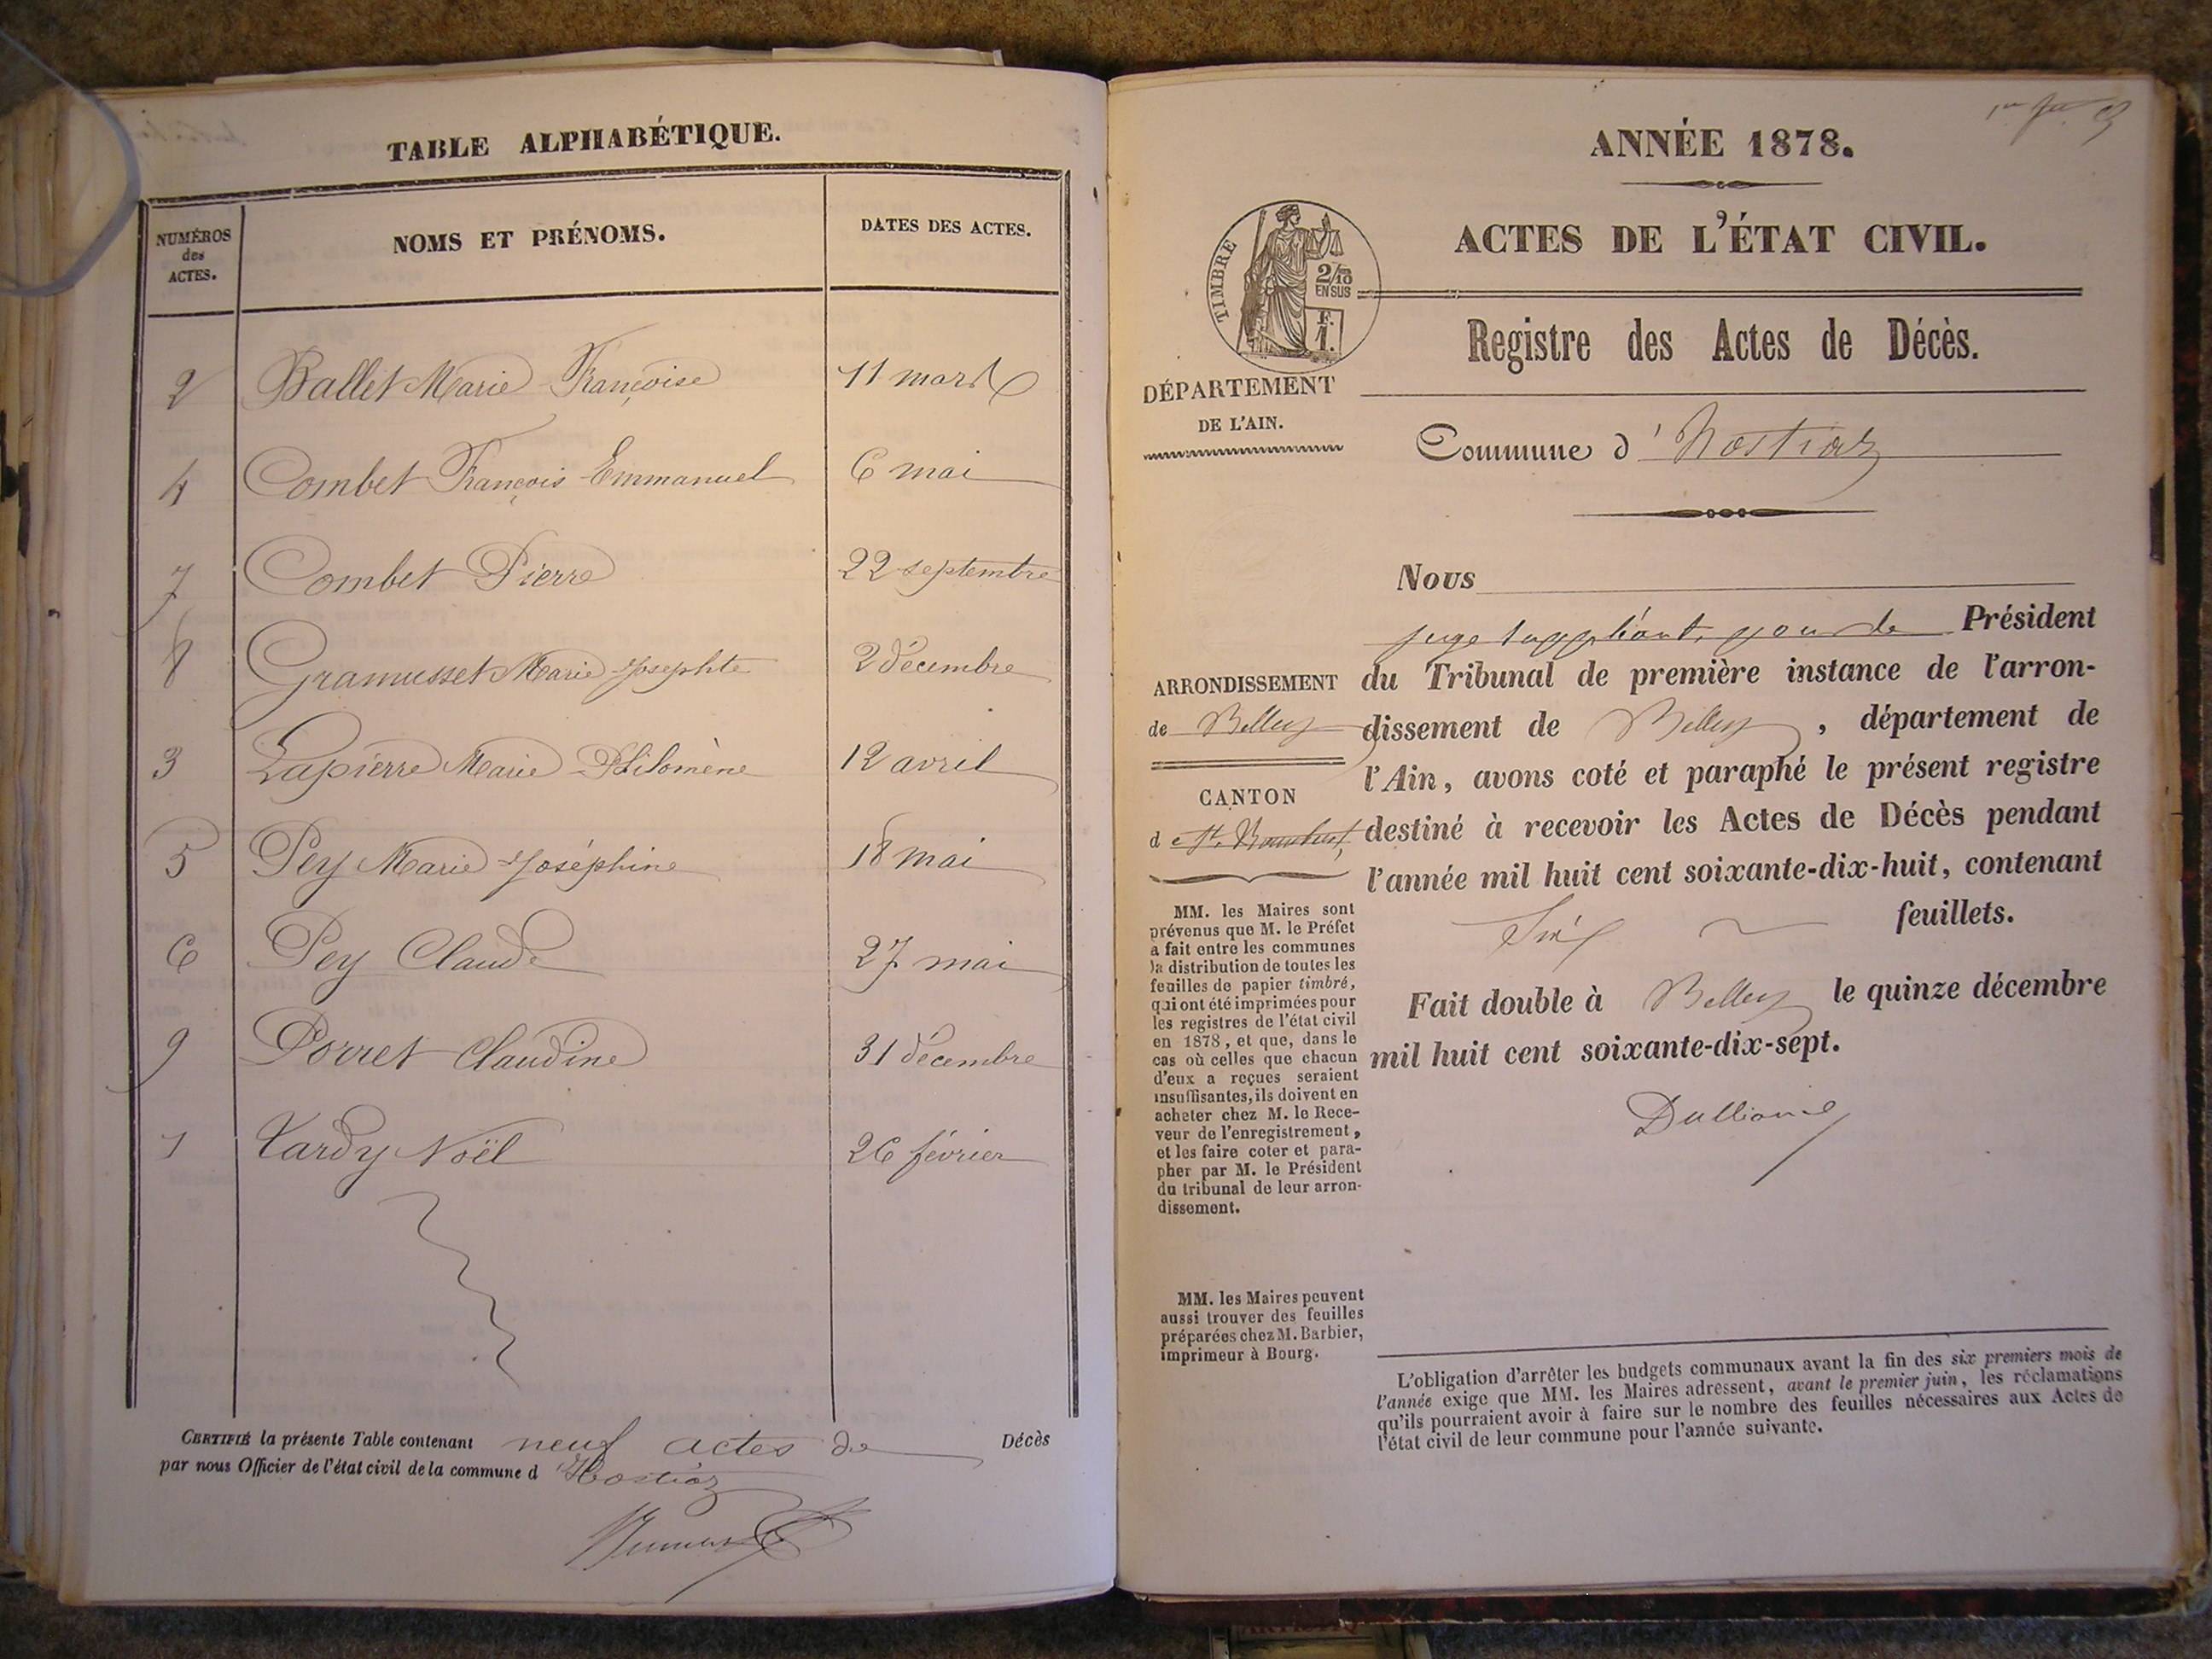 TABLE ALPHABÉTIQUE.
NUMÉROS
des
ACTES.
NOMS ET PRÉNOMS.
DATES DES ACTES.
2 Ballet Marie Françoise 11 mars
4 Combet François Emmanuel 6 mai
7 Combet Pierre 22 septembre
8 Gramusset Marie Josephte 2 décembre
3 Lapierre Marie Philomène 12 avril
5 Pey Marie Joséphine 18 mai
6 Pey Claude 27 mai
9 Porret Claudine 31 décembre
1 Tardy Noël 26 février
CERTIFIÉ la présente Table contenant neuf actes de Décès
par nous Officier de l'état civil de la commune d'Hostiaz
ANNÉE 1878.
ACTES DE L'ÉTAT CIVIL.
TIMBRE
2/10
EN SUS
F.
1.
Registre des Actes de Décès.
DÉPARTEMENT
DE L'AIN.
Commune d'Hostiaz
Nous
juge suppléant, pour le Président
du Tribunal de première instance de l'arron-
dissement de Belley, département de
l'Ain, avons coté et paraphé le présent registre
destiné à recevoir les Actes de Décès pendant
l'année mil huit cent soixante-dix-huit, contenant
Six feuillets.
Fait double à Belley le quinze décembre
mil huit cent soixante-dix-sept.
ARRONDISSEMENT
de Belley
CANTON
d
MM. les Maires sont
prévenus que M. le Préfet
a fait entre les communes
la distribution de toutes les
feuilles de papier timbré,
qui ont été imprimées pour
les registres de l'état civil
en 1878, et que, dans le
cas où celles que chacun
d'eux a reçues seraient
insuffisantes, ils doivent en
acheter chez M. le Rece-
veur de l'enregistrement,
et les faire coter et para-
pher par M. le Président
du tribunal de leur arron-
dissement.
MM. les Maires peuvent
aussi trouver des feuilles
préparées chez M. Barbier,
imprimeur à Bourg.
L'obligation d'arrêter les budgets communaux avant la fin des six premiers mois de
l'année exige que MM. les Maires adressent, avant le premier juin, les réclamations
qu'ils pourraient avoir à faire sur le nombre des feuilles nécessaires aux Actes de
l'état civil de leur commune pour l'année suivante.